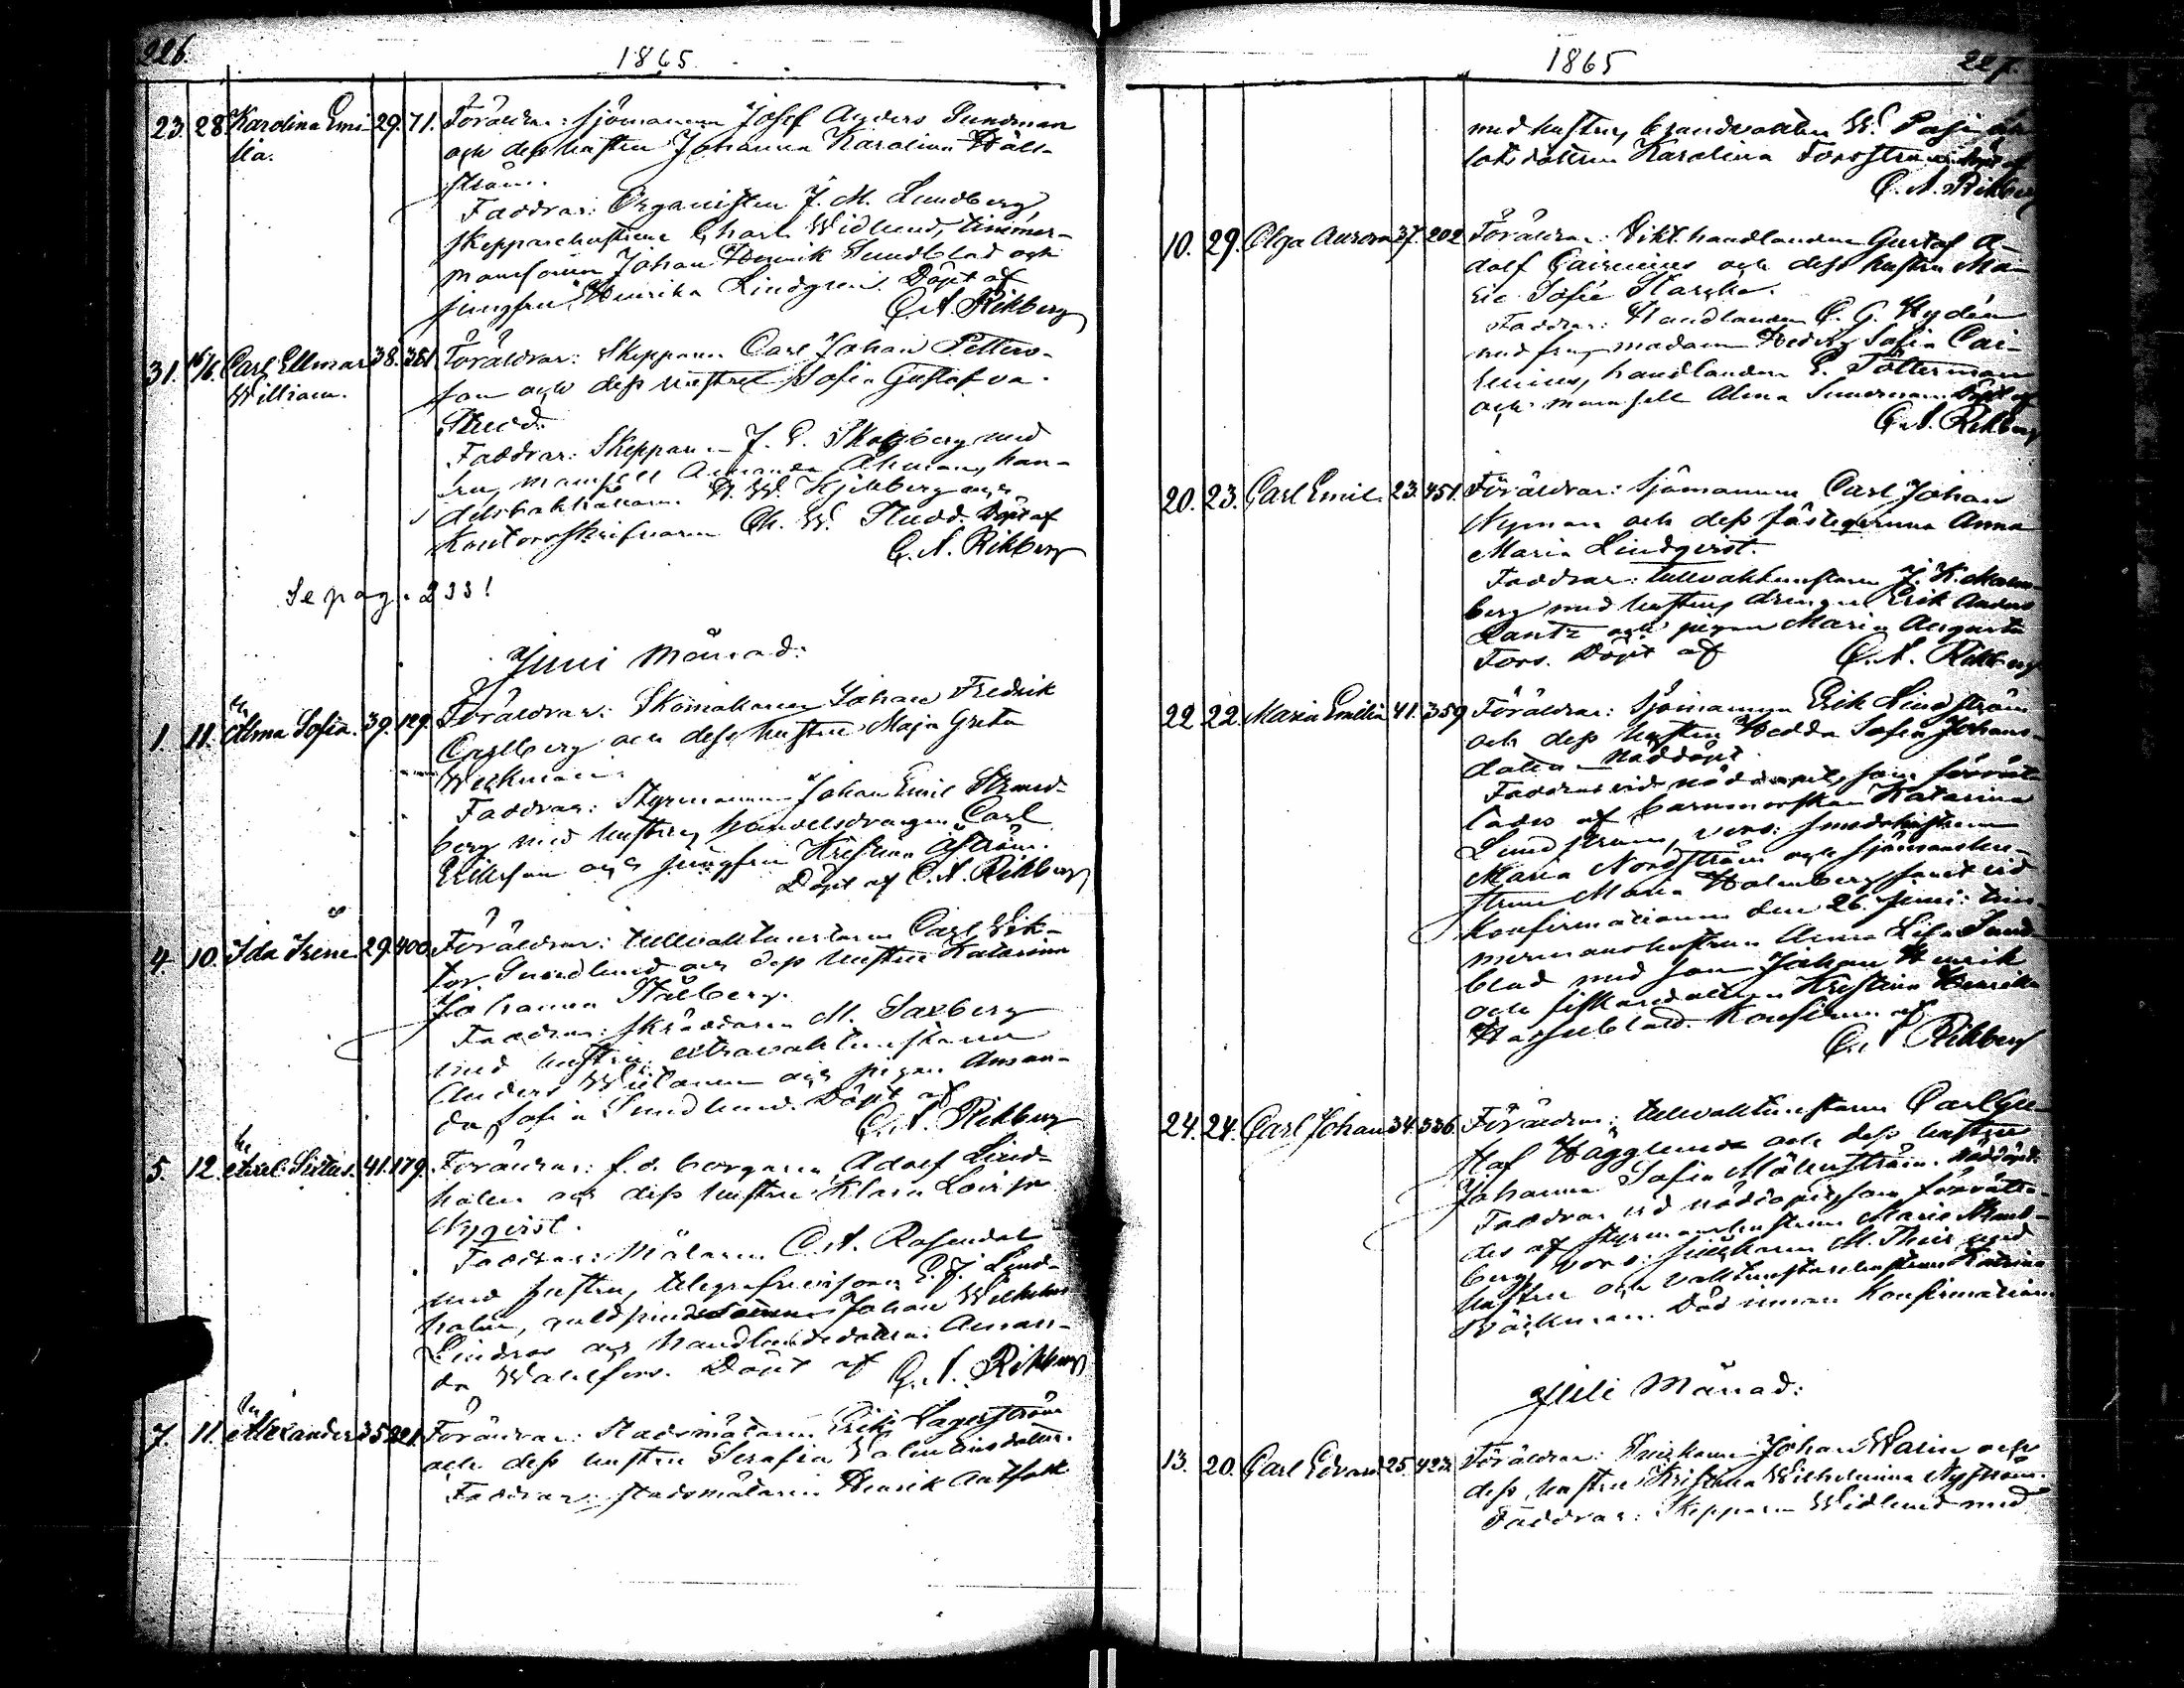 226.
1865
23. 28 Karolina Emi- 29. 71. Föräldrar: Sjömannen Josef Anders Sundman
lia. och dess hustru Johanna Karolina
ström.
Faddrar: Organisten J. M. Lundberg,
skepparehustrun Charl. Widlund, timmer-
mansonen Johan Henrik Sundblad och
jungfrun Henrika Lindgren. Döpt af
C. A. Rikberg
31. 16/6. Carl Ellmar 38. 351 Föräldrar: Skepparen Carl Johan Petters-
William. son och dess hustru Sofia Gustafva
Studd.
Faddrar: Skepparen J. E. Skogberg med
fru, mamsell Amanda Åhman, han-
delsbokhållaren A. W. Kjellberg och
Kontorsskrifvaren Ch. W. Studd. Döpt af
C. A. Rikberg
Se pag. 233!
Juni Månad:
1. 11. Alma Sofia. 39. 129. Föräldrar: Skomakaren Johan Fredrik
Carlberg och dess hustru Maja Greta
Weckman.
Faddrar: Styrmannen Johan Emil Strand-
berg med hustru, handelsdrängen Carl
Erikson och jungfru Kristina Åström.
Döpt af C. A. Rikberg
4 10. Ida Irene 29. 400. Föräldrar: tullvaktmästaren Carl Vik-
tor Sundlund och dess hustru Katarina
Johanna Stålberg.
Faddrar: skräddaren M. Saxberg
med hustru, extravaktmästaren
Anders och pigan Aman-
da Sofia Sundlund. Döpt af
C. A. Rikberg
5. 12. Axel Sixtus. 41. 179. Föräldrar: f. d. borgaren Adolf Lind-
holm och dess hustru Klara Lovisa
Nyqvist.
Faddrar: Målaren C. A. Rosendal
med hustru, telegrafrevisorn E. J. Lind-
holm, guldsmedssonen Johan Wilhelm
Lindros och handlandedottren Aman-
da Wahlfors. Döpt af C. A. Rikberg
7. 11. Alexander 35 221. Föräldrar: Stadsmätaren Erik Lagerström
och dess hustru Serafia Valentinsdotter.
Faddrar: stadsmätaren Henrik
1865
227.
med hustru, brandvakten W.
lotsdottren Karolina Forsström. Döpt af
C. A. Rikberg
10. 29. Olga Aurora 37. 202 Föräldrar: Vikt. handlanden Gustaf A-
dolf Cairenius och dess hustru Ma-
rie Sofie Starcke.
Faddrar: Handlanden C. G. Hydén
med fru, madam Hedvig Sofia Cai-
renius, handlanden E. Tölterman
och mamsell Alma Sundman. Döpt af
C. A. Rikberg
20. 23. Carl Emil. 23. 451. Föräldrar: Sjömannen Carl Johan
Nyman och dess fästeqvinna Anna
Maria Lindqvist.
Faddrar: tullvaktmästaren J. K. Malm-
berg med hustru, drängen Erik Anders
Lantz och pigan Maria Augusta
Fors. Döpt af C. A. Rikberg
22 22. Maria Emilia 41. 359 Föräldrar: Sjömannen Erik Lindström
och dess hustru Hedda Sofia Johans-
dotter. Nöddöpt
Faddrar vid nöddopet, som förrätta-
tades af barnmorskan Katarina
Lundström, voro: smedshustrun
Maria Nordström och sjömanshu-
strun Maria Holmberg samt vid
Konfirmationen den 26 Juni: tim-
mermanshustrun Anna Lisa Sund-
blad med son Johan Henrik
och fiskaredottren Kristina Henrika
Hasselblad. Konfirm. af
C. A. Rikberg
24. 24. Carl Johan 34. 336. Föräldrar: tullvaktmästaren Carl Gu-
staf Hägglund och dess hustru
Johanna Sofia Möllerström. Nöddöpt.
Faddrar vid nöddopet, som förrätta-
des af styrmanshustrun Maria Strand-
berg, voro: snickaren M. Thur med
hustru och vaktmästarehustrun Katrina
Bäckman. Död innan Konfirmation
Juli Månad:
13. 20. Carl Edvard 25. 423. Föräldrar: Snickaren Johan Warin och
dess hustru Kristina Wilhelmina Nyström.
Faddrar: Skepparen Widlund med